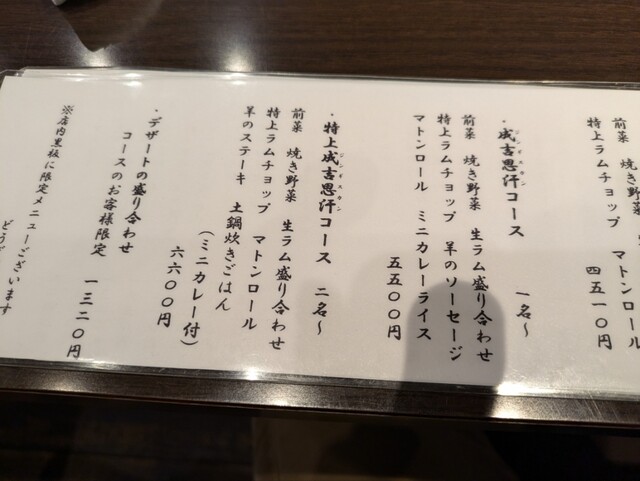 前菜 焼き野菜
特上ラムチョップ マトンロール
四五一〇円
・成吉思汗コース 一名～
ジンイスカン
前菜 焼き野菜 生ラム盛り合わせ
特上ラムチョップ 羊のソーセージ
マトンロール ミニカレーライス
五五〇〇円
・特上成吉思汗コース 二名～
ジンイスカン
前菜 焼き野菜 生ラム盛り合わせ
特上ラムチョップ マトンロール
羊のステーキ 土鍋炊きごはん
（ミニカレー付）
六六〇〇円
・デザートの盛り合わせ
コースのお客様限定 一三二〇円
※店内黒板に限定メニューございます
どうぞ